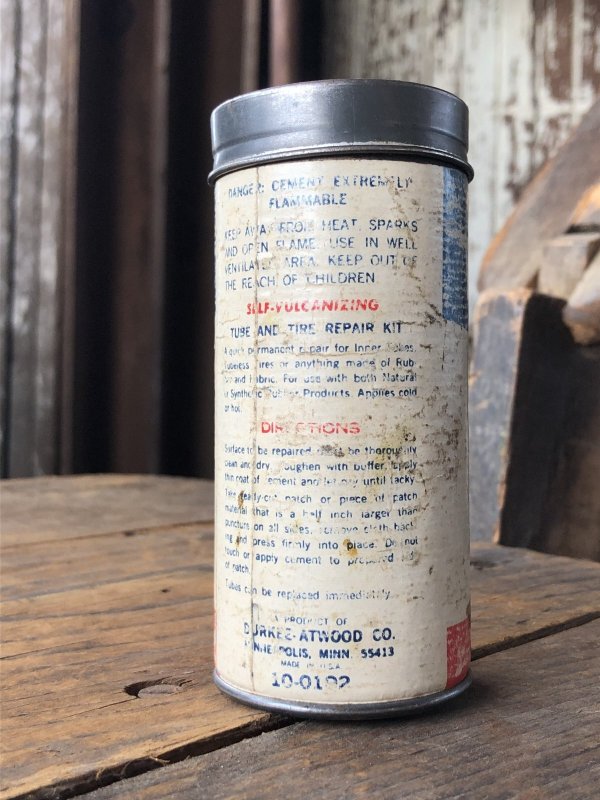 DANGER: CEMENT EXTREMELY
FLAMMABLE
KEEP AWAY FROM HEAT, SPARKS
AND OPEN FLAME. USE IN WELL
VENTILATED AREA. KEEP OUT OF
THE REACH OF CHILDREN
SELF-VULCANIZING
TUBE AND TIRE REPAIR KIT
A quick permanent repair for Inner Tubes,
Tubeless Tires or anything made of Rub-
ber and Fabric. For use with both Natural
or Synthetic Rubber Products. Applies cold
or hot.
DIRECTIONS
Surface to be repaired must be thoroughly
clean and dry. Roughen with buffer. Apply
thin coat of cement and let dry until tacky.
Take ready-cut patch or piece of patch
material that is a half inch larger than
puncture on all sides, remove cloth back-
ing and press firmly into place. Do not
touch or apply cement to prepared side
of patch.
Tubes can be replaced immediately.
A PRODUCT OF
DURKEE-ATWOOD CO.
MINNEAPOLIS, MINN. 55413
MADE IN U.S.A.
10-0192